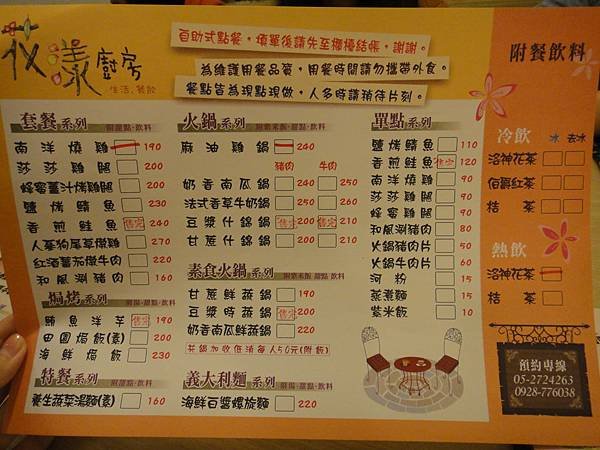 花漾廚房
生活.餐飲
自助式點餐,填單後請先至櫃檯結帳,謝謝。
為維護用餐品質,用餐時間請勿攜帶外食。
餐點皆為現點現做,人多時請稍待片刻。
套餐 系列 附甜點.飲料
南洋燒雞 190
莎莎雞腿 200
蜂蜜薑汁烤雞腿 200
鹽烤鯖魚 230
香煎鮭魚 售完 240
人蔘狗尾草燉雞 270
紅酒蕃茄燉牛肉 220
和風涮豬肉 160
焗烤 系列 附湯.甜點.飲料
鮪魚洋芋 售完 190
田園焗飯(素) 200
海鮮焗飯 230
特餐 系列 附甜點.飲料
養生蔬菜湯麵(素) 160
火鍋 系列 附紫米飯.甜點.飲料
麻油雞鍋 240
豬肉 牛肉
奶香南瓜鍋 240 250
法式香草牛奶鍋 240 250
豆漿什錦鍋 售完 200 售完 210
甘蔗什錦鍋 200 210
素食火鍋 系列 附紫米飯 甜點 飲料
甘蔗鮮蔬鍋 190
豆漿時蔬鍋 售完 190
奶香南瓜鮮蔬鍋 220
共鍋加收低消每人50元(附飯)
義大利麵 系列 附湯.甜點.飲料
海鮮白醬螺旋麵 220
單點 系列
鹽烤鯖魚 110
香煎鮭魚 售完 120
南洋燒雞 90
莎莎雞腿 90
蜂蜜雞腿 90
和風涮豬肉 80
火鍋豬肉片 50
火鍋牛肉片 60
河粉 15
蒸煮麵 15
紫米飯 10
附餐飲料
冷飲 冰 去冰
洛神花茶
伯爵紅茶
桔茶
熱飲
洛神花茶
桔茶
預約專線
05-2724263
0928-776038